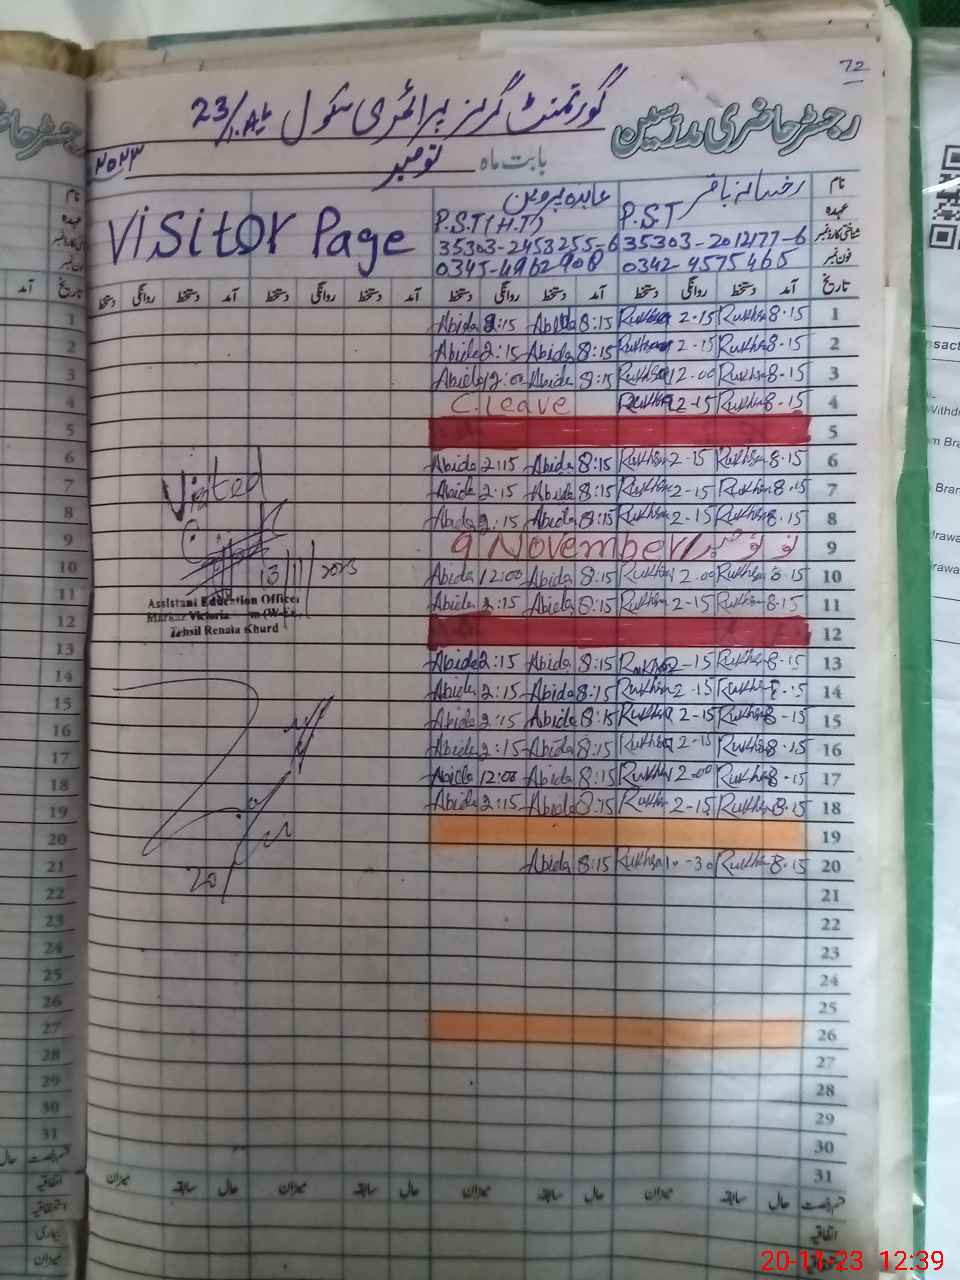 72
رجسٹر حاضری مدرسین گورنمنٹ گرلز پرائمری سکول 23/1.AL
بابت ماہ نومبر ۲۰۲۳
نام رخسانہ باقر عابدہ پروین
عہدہ P.ST P.S.T (H.T)
شناختی کارڈ نمبر 35303-2012177-6 35303-2453255-6
فون نمبر 0342-4575465 0345-4962908
Visitor Page
تاریخ آمد دستخط روانگی دستخط آمد دستخط روانگی دستخط آمد دستخط روانگی دستخط آمد دستخط روانگی دستخط
Abida 2:15 Abida 8:15 Rukhsa 2-15 Rukhsa 8-15 1
Abida 2:15 Abida 8:15 Rukhsa 2-15 Rukhsa 8-15 2
Abida 12:00 Abida 8:15 Rukhsa 12-00 Rukhsa 8-15 3
C.leave Rukhsa 2-15 Rukhsa 8-15 4
5
Abida 2:15 Abida 8:15 Rukhsa 2-15 Rukhsa 8-15 6
Abida 2:15 Abida 8:15 Rukhsa 2-15 Rukhsa 8-15 7
Abida 2:15 Abida 8:15 Rukhsa 2-15 Rukhsa 8-15 8
9 November 9
Abida 12:00 Abida 8:15 Rukhsa 12-00 Rukhsa 8-15 10
Abida 2:15 Abida 8:15 Rukhsa 2-15 Rukhsa 8-15 11
12
Abida 2:15 Abida 8:15 Rukhsa 2-15 Rukhsa 8-15 13
Abida 2:15 Abida 8:15 Rukhsa 2-15 Rukhsa 8-15 14
Abida 2:15 Abida 8:15 Rukhsa 2-15 Rukhsa 8-15 15
Abida 2:15 Abida 8:15 Rukhsa 2-15 Rukhsa 8-15 16
Abida 12:00 Abida 8:15 Rukhsa 12-00 Rukhsa 8-15 17
Abida 2:15 Abida 8:15 Rukhsa 2-15 Rukhsa 8-15 18
19
Abida 8:15 Rukhsa 10-30 Rukhsa 8-15 20
21
22
23
24
25
26
27
28
29
30
31
Visited
13/11/2023
Assistant Education Officer
Markaz Victoria (W-E)
Tehsil Renala Khurd
20
قسم رخصت حال سابقہ میزان حال سابقہ میزان حال سابقہ میزان حال سابقہ میزان
اتفاقیہ
20-11-23 12:39